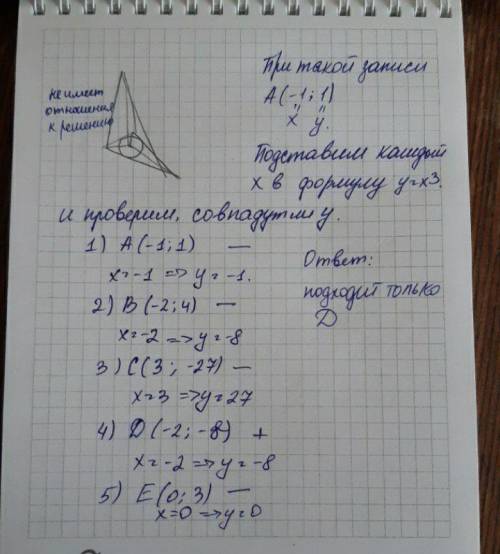 не имеет
отношения
к решению
При такой записи
A(-1; 1)
x y.
Подставим каждый
x в формулу y=x³.
и проверим, совпадут ли y.
1) A(-1; 1) —
x=-1 => y=-1.
2) B(-2; 4) —
x=-2 => y=-8
3) C(3; -27) —
x=3 => y=27
4) D(-2; -8) +
x=-2 => y=-8
5) E(0; 3) —
x=0 => y=0
Ответ:
подходит только
D